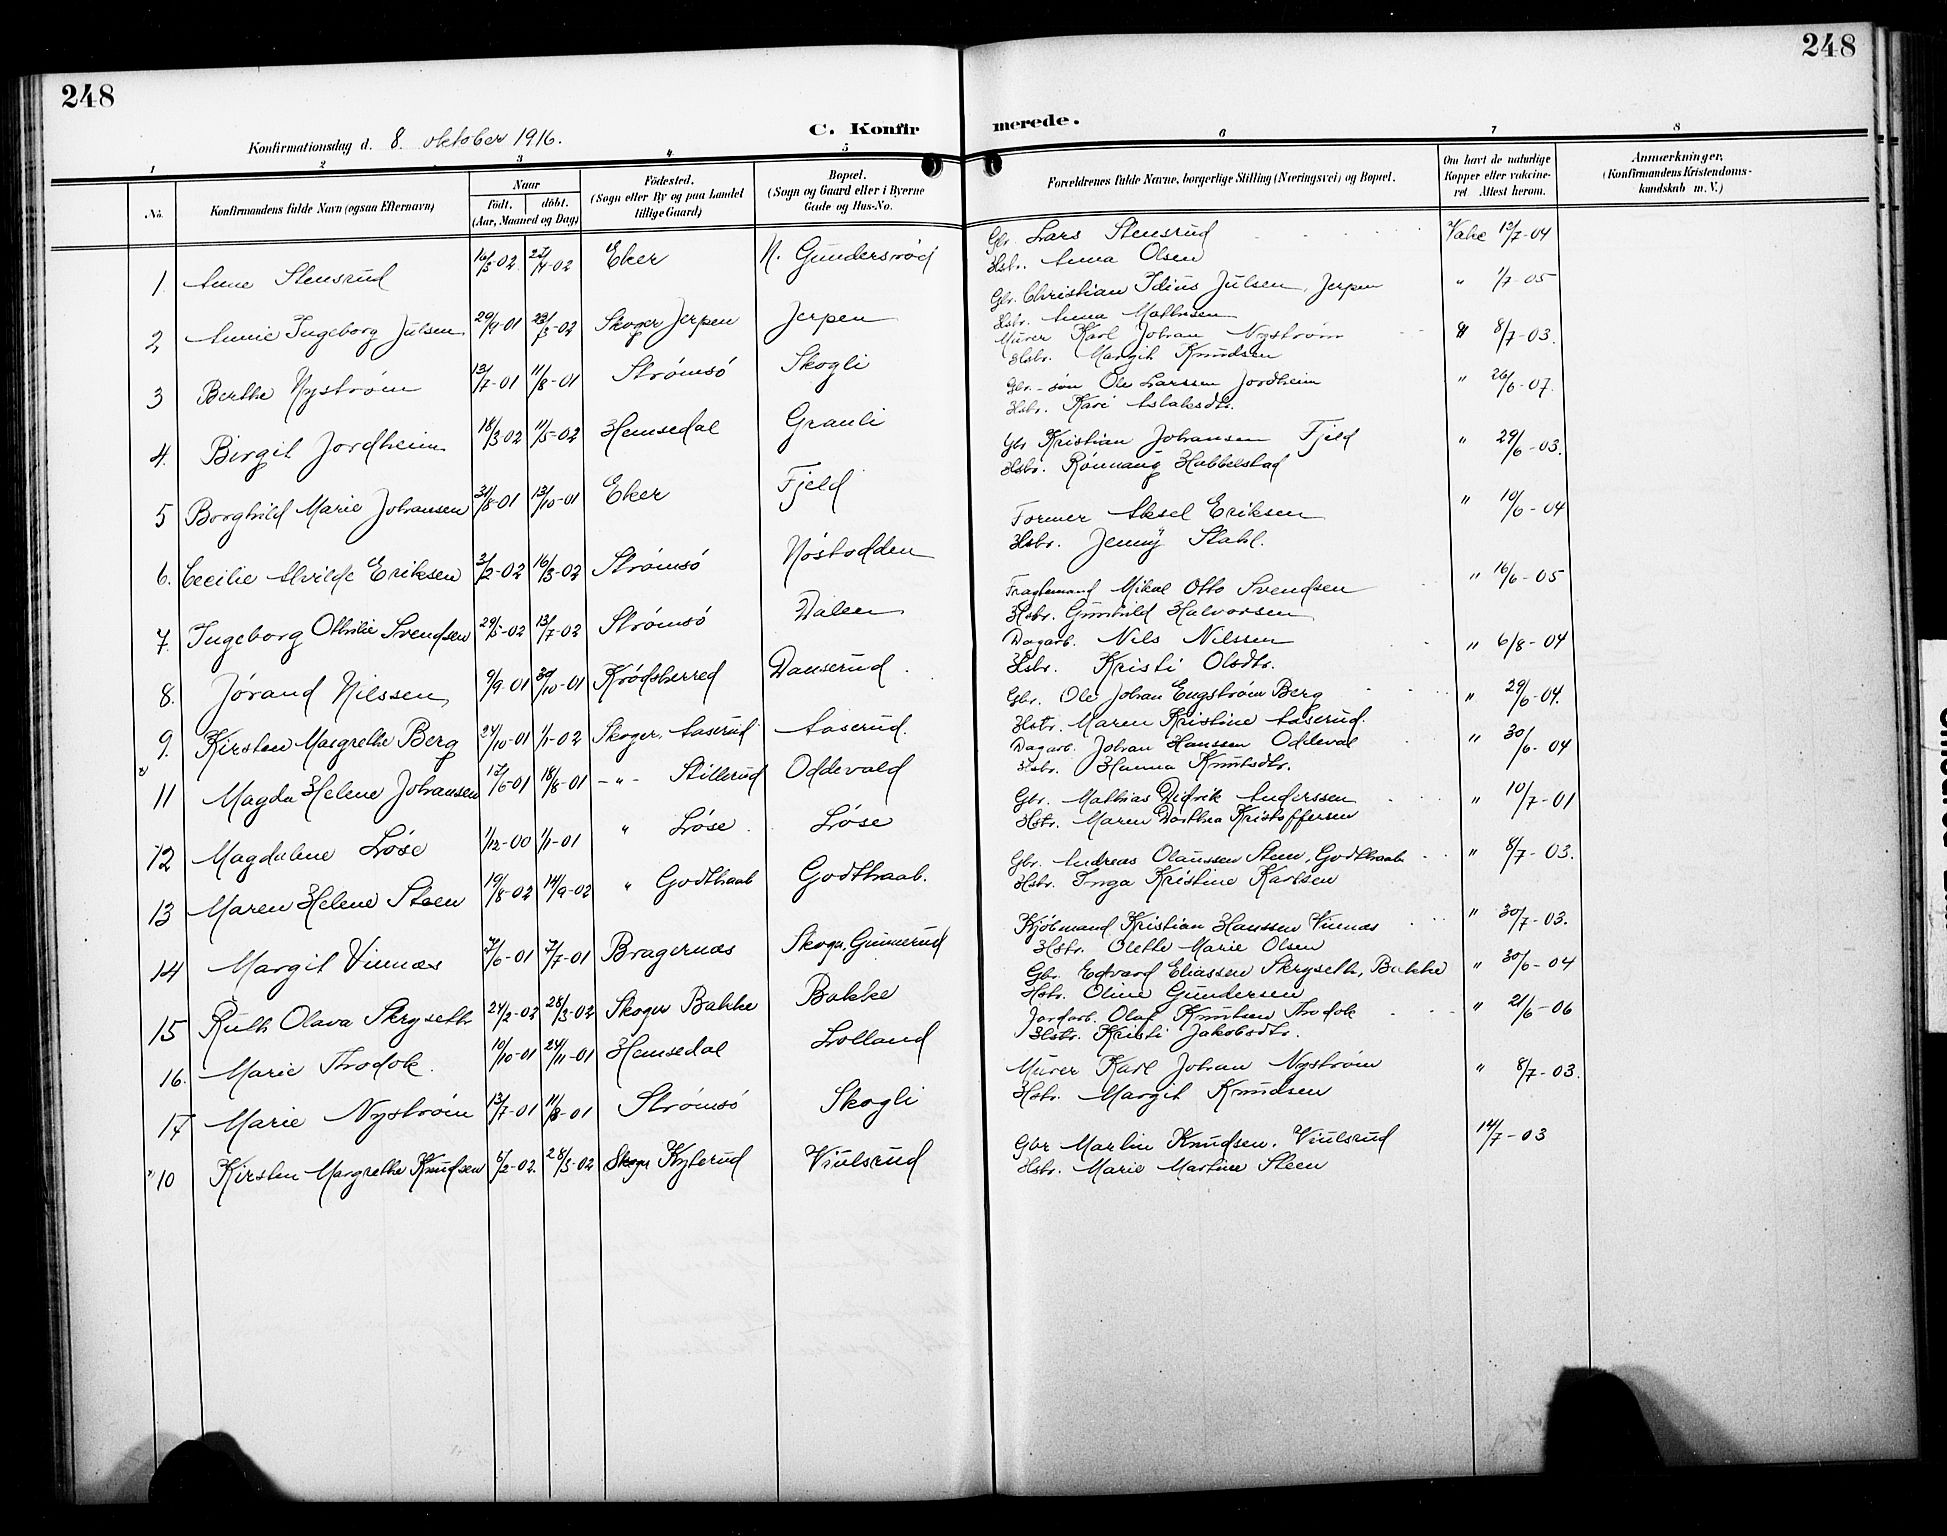 248
248
C. Konfir merede.
Konfirmationsdag d. 8. oktober 1916.
1 2 3 4 5 6 7 8
No.
Konfirmandens fulde Navn (ogsaa Efternavn)
Naar
født. døbt.
(Aar, Maaned og Dag)
Fødested.
(Sogn eller By og paa Landet
tillige Gaard)
Bopæl.
(Sogn og Gaard eller i Byerne
Gade og Hus-No.
Forældrenes fulde Navne, borgerlige Stilling (Næringsvei) og Bopæl.
Om havt de naturlige
Kopper eller vaccine-
ret Attest herom.
Anmærkninger,
(Konfirmandens Kristendoms-
kundskab m. V.)
1. Anne Stensrud 16/3-02 27/4-02 Eker N. Gundersrød Gbr. Lars Stensrud Vake 13/7-04
Hstr. Anna Olsen
2 Annie Ingeborg Julsen 29/9-01 23/3-02 Skoger Jerpen Jerpen Gbr. Christian Idius Julsen, Jerpen " 1/7-05
Hstr. Anna Mathisen
3 Berthe Nystrøm 13/7-01 11/8-01 Strømsø Skogli Murer Karl Johan Nystrøm " 8/7-03.
Hstr. Margit Knudsen
4. Birgit Jordheim 18/3-02 11/5-02 Hemsedal Granli Gbr.-søn Ole Larssen Jordheim " 26/6-07.
Hstr. Kari Aslaksdtr.
5 Borghild Marie Johansen 31/8-01 13/10-01 Eker Fjeld Gbr Kristian Johansen Fjeld " 29/6-03.
Hstr. Rønnaug Hobbelstad
6. Cecilie Alvilde Eriksen 3/2-02 16/3-02 Strømsø Nøstodden Former Aksel Eriksen " 10/6-04
Hstr. Jenny Stahl.
7. Ingeborg Othilie Svendsen 29/5-02 13/7-02 Strømsø Dalen Fragtemand Mikal Otto Svendsen " 16/6-05
Hstr. Gunhild Halvorsen
8. Jørand Nilssen 9/9-01 30/10-01 Krødsherred Danserud. Dagarb. Nils Nilssen " 6/8-04
Hstr. Kristi Olsdtr.
9. Kirsten Margrethe Berg 24/10-01 1/1-02 Skoger. Aaserud Aaserud. Gbr. Ole Johan Engstrøm Berg " 29/6-04.
Hstr. Maren Kristine Aaserud.
11 Magda Helene Johansen 17/6-01 18/8-01 -"- Stillerud Oddevald Dagarb. Johan Hanssen Oddeval " 30/6-04
Hstr. Hanna Knutsdtr.
12 Magdalene Løse 1/12-00 1/1-01 " Løse. Løse Gbr. Mathias Didrik Anderssen " 10/7-01
Hstr. Maren Dorthea Kristoffersen
13 Maren Helene Steen 19/8-02 14/9-02 " Godthaab Godthaab. Gbr. Andreas Olaussen Steen, Godthaab " 8/7-03.
Hstr. Inga Kristine Karlsen
14 Margit Vinnæs 7/6-01 7/7-01 Bragernæs Skoger, Gunnerud Kjøbmand Kristian Hanssen Vinnæs " 30/7-03.
Hstr. Olette Marie Olsen
15 Ruth Olava Skryseth 24/2-02 28/3-02 Skoger Bakke Bakke Gbr. Edvard Eliassen Skryseth, Bakke " 30/6-04
Hstr. Oline Gundersen
16. Marie Thodok. 10/10-01 24/11-01 Hemsedal Lolland Jordarb. Olaf Knutsen Thodok " 21/6-06
Hstr. Kristi Jakobsdtr.
17 Marie Nystrøm 13/7-01 11/8-01 Strømsø Skogli Murer Karl Johan Nystrøm " 8/7-03.
Hstr. Margit Knudsen
10 Kirsten Margrethe Knudsen 6/2-02. 28/3-02 Skoger Kylerud Viulsrud Gbr Martin Knudsen, Viulsrud 14/7-03
Hstr. Marie Martine Steen